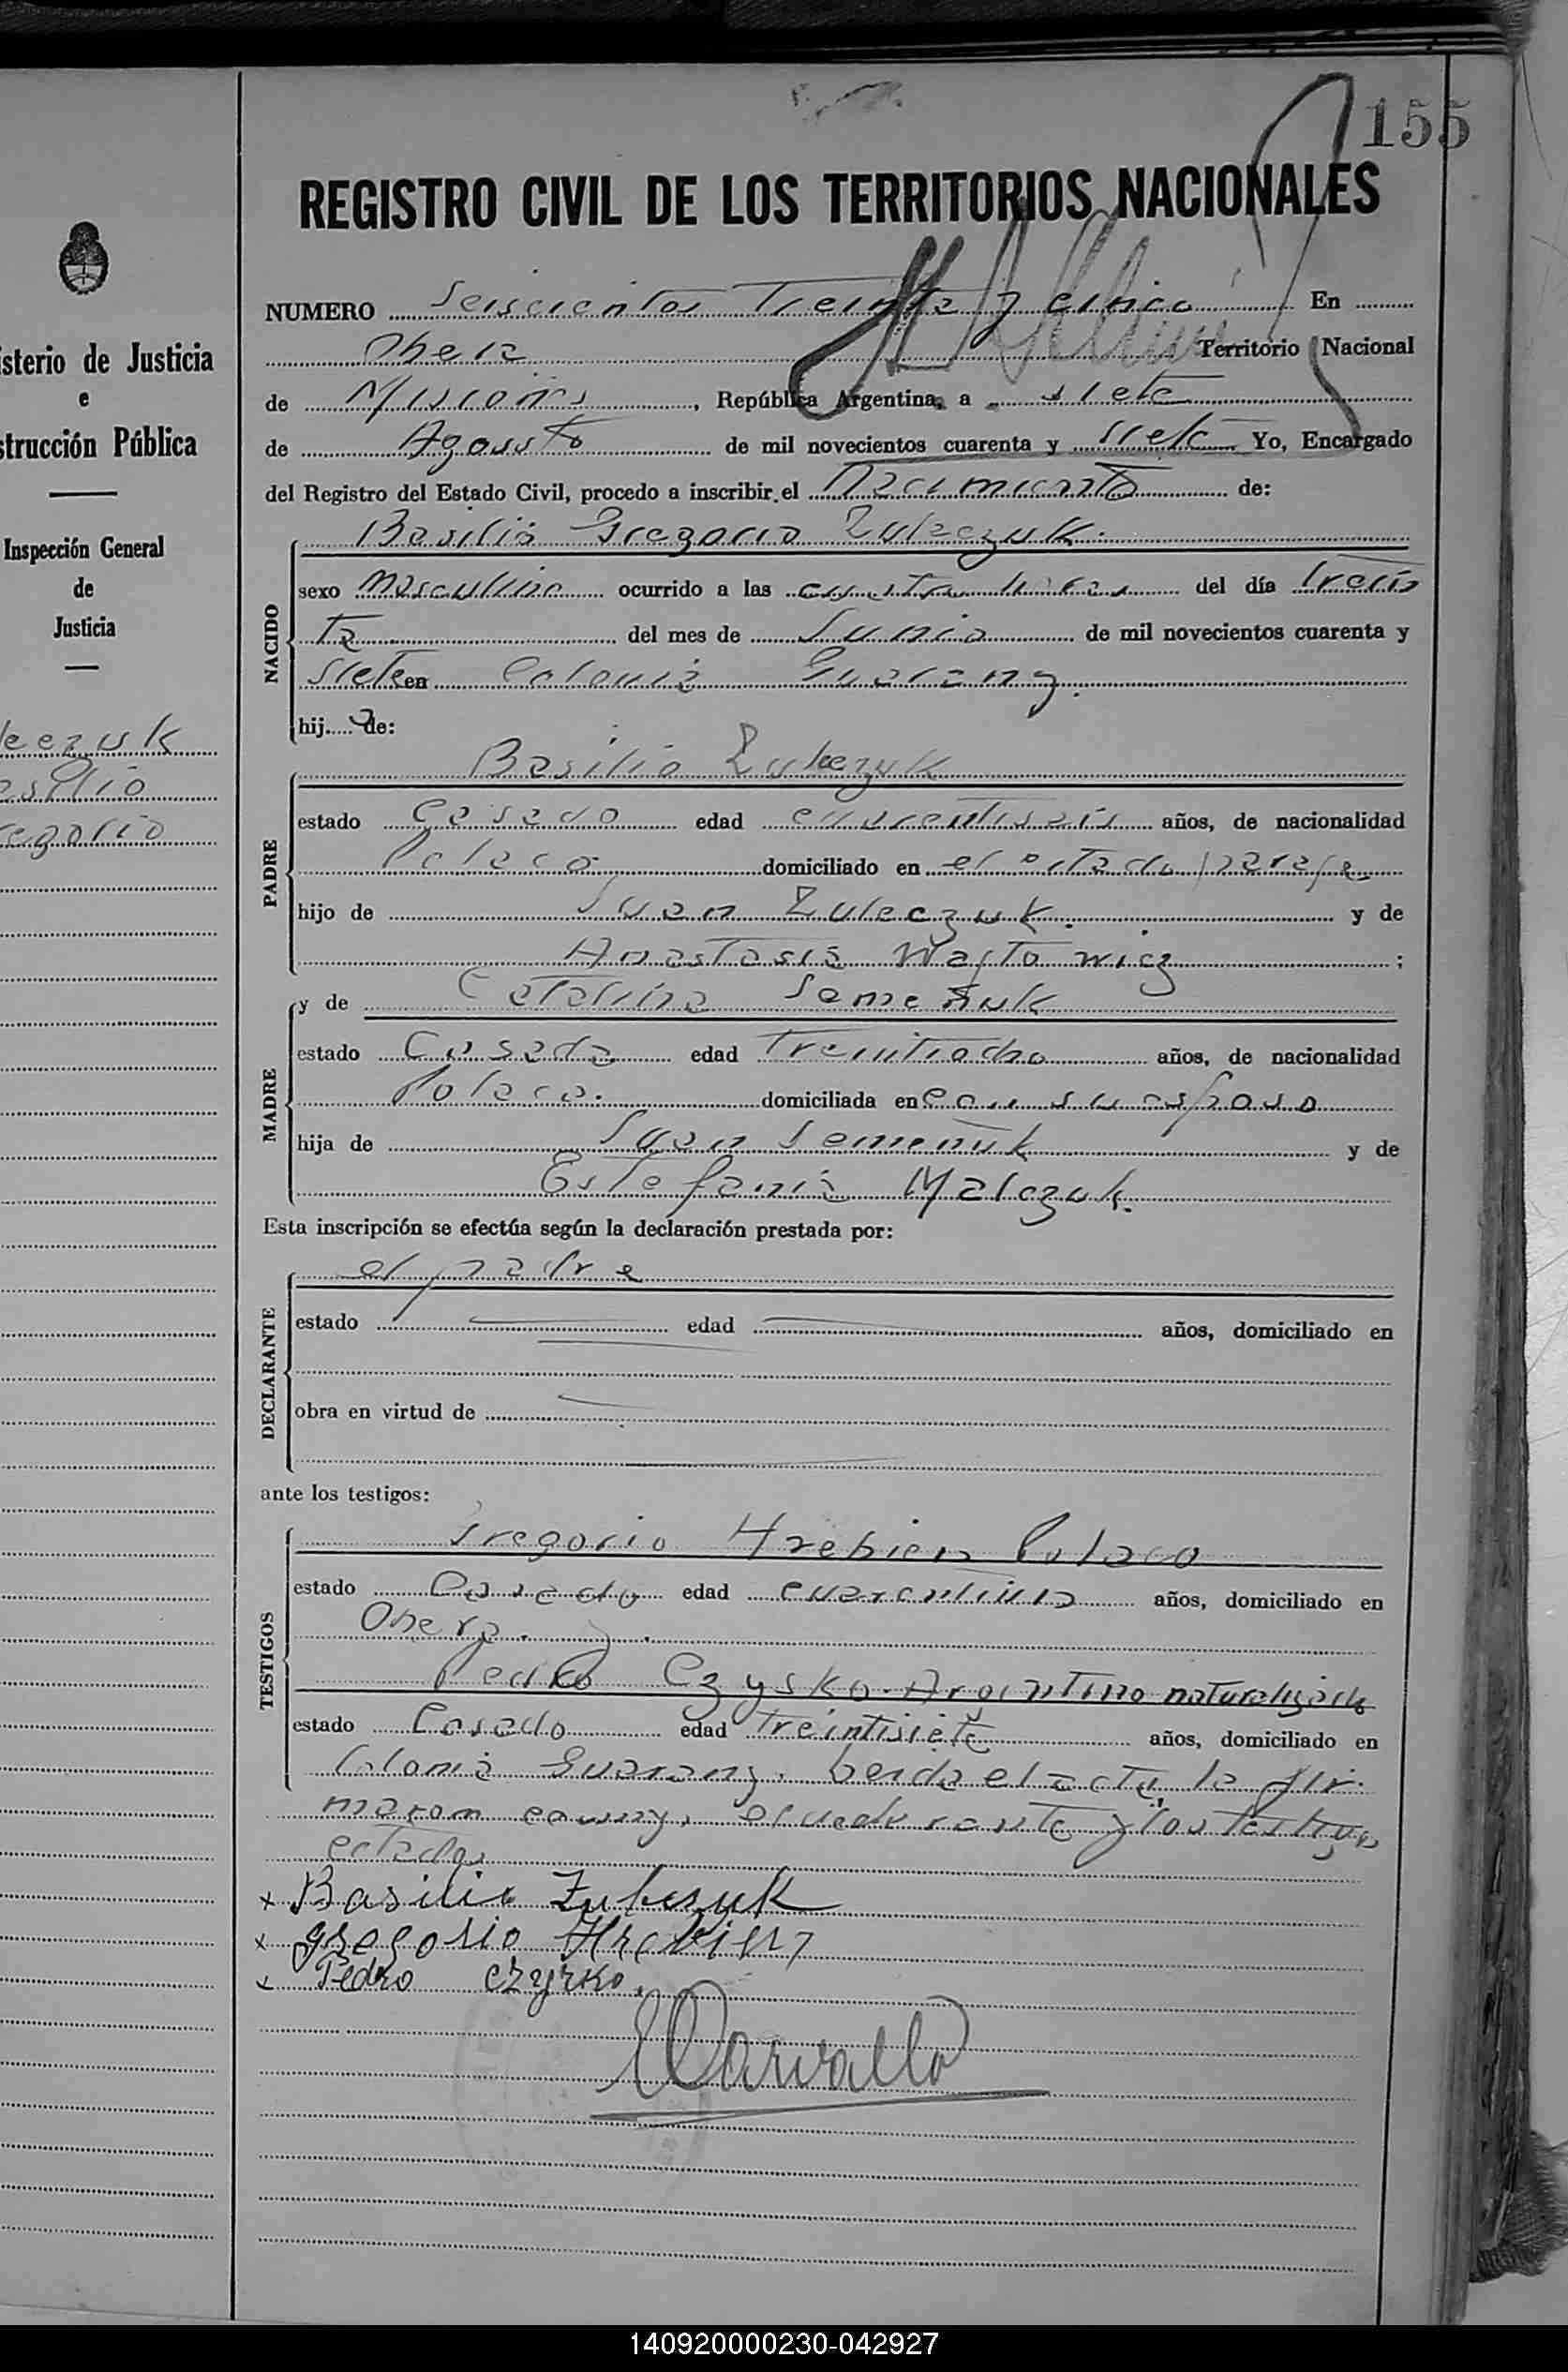 155
REGISTRO CIVIL DE LOS TERRITORIOS NACIONALES
NUMERO Seiscientos Treinta y cinco En
Obera Territorio Nacional
de Misiones, República Argentina, a siete
de Agosto de mil novecientos cuarenta y siete Yo, Encargado
del Registro del Estado Civil, procedo a inscribir el Nacimiento de:
Basilio Gregorio Zuleczuk.
NACIDO
sexo masculino ocurrido a las cuatro horas del día trein
ta del mes de Junio de mil novecientos cuarenta y
siete en Colonia Guarany.
hijo de:
PADRE
Basilio Zuleczuk
estado Casado edad cuarentiseis años, de nacionalidad
Polaca domiciliado en el citado paraje
hijo de Juan Zuleczuk. y de
Anastasia Wajtowicz ;
MADRE
y de Catalina Semeñuk
estado Casada edad Treintiocho años, de nacionalidad
Polaca. domiciliada en con su esposo
hija de Juan Semeñuk y de
Estefania Malczuk.
Esta inscripción se efectúa según la declaración prestada por:
DECLARANTE
el padre
estado edad años, domiciliado en
obra en virtud de
ante los testigos:
TESTIGOS
Gregorio Hrebien Polaco
estado Casado edad años, domiciliado en
Obera.
Pedro Czysko. Argentino naturalizado
estado Casado edad Treintisiete años, domiciliado en
Colonia Guarany. Leida el acta, la fir
maron conmigo, el declarante y los testigos
citados
x Basilio Zuleczuk
x Gregorio
x Pedro Czyrko.
Carvallo
isterio de Justicia
e
strucción Pública
Inspección General
de
Justicia
leczuk
asilio
egorio
140920000230-042927